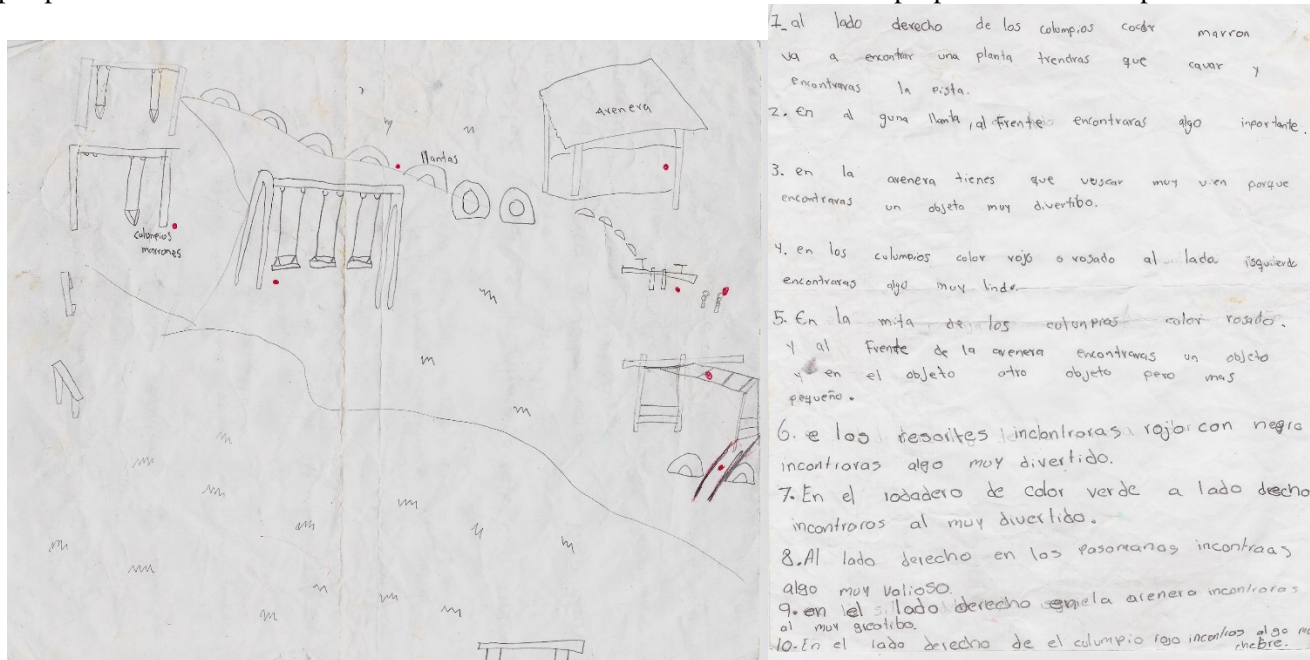 Arenera
llantas
columpios
marrones
1_ al lado derecho de los columpios color marron
va a encontrar una planta trendras que cavar y
encontraras la pista.
2. En al guna llanta, al frente encontraras algo inportante.
3. en la arenera tienes que vuscar muy vien porque
encontraras un objeto muy divertibo.
4. en los columpios color rojo o rosado al lada isquierdo
encontraras algo muy lindo.
5. En la mita de los colunpios color rosado.
y al frente de la arenera encontraras un objeto
y en el objeto otro objeto pero mas
pequeño.
6. e los resorites incontroras rojo con negro
incontraras algo moy divertido.
7. En el rodadero de color verde a lado decho
incontraros al muy divertido.
8. Al lado derecho en los pasamanos incontraas
algo moy valioso.
9. en lel lado derecho la arenero incontraras
al muy
10. En el lado derecho de el culumpio rojo algo
chebre.